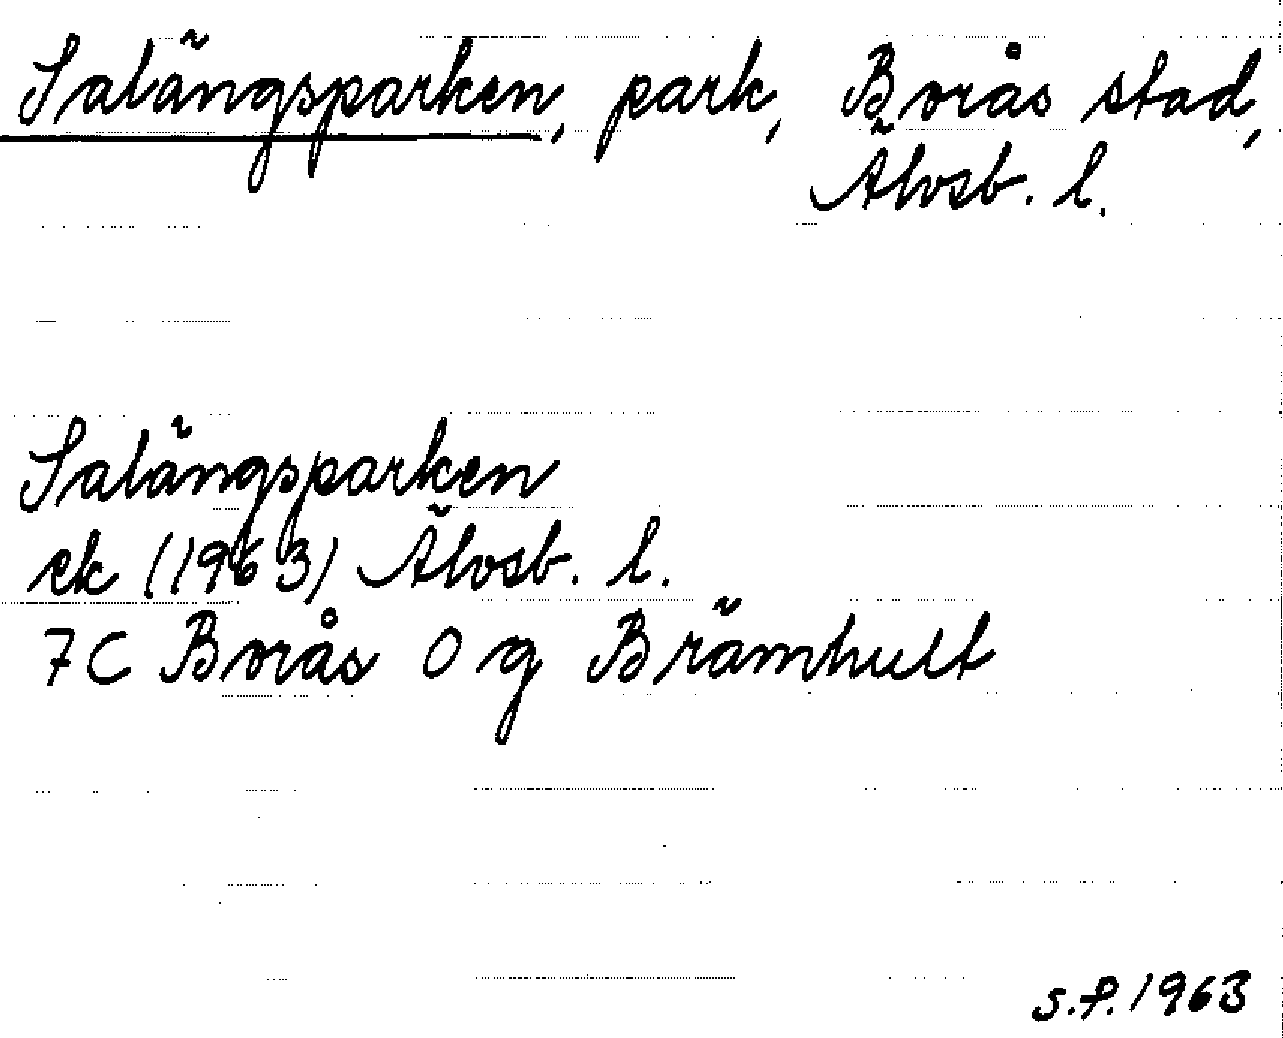 Salängsparken, park, Borås stad,
Älvsb. l.
Salängsparken
ek (1963) Älvsb. l.
7C Borås 0 g Brämhult
s.f. 1963